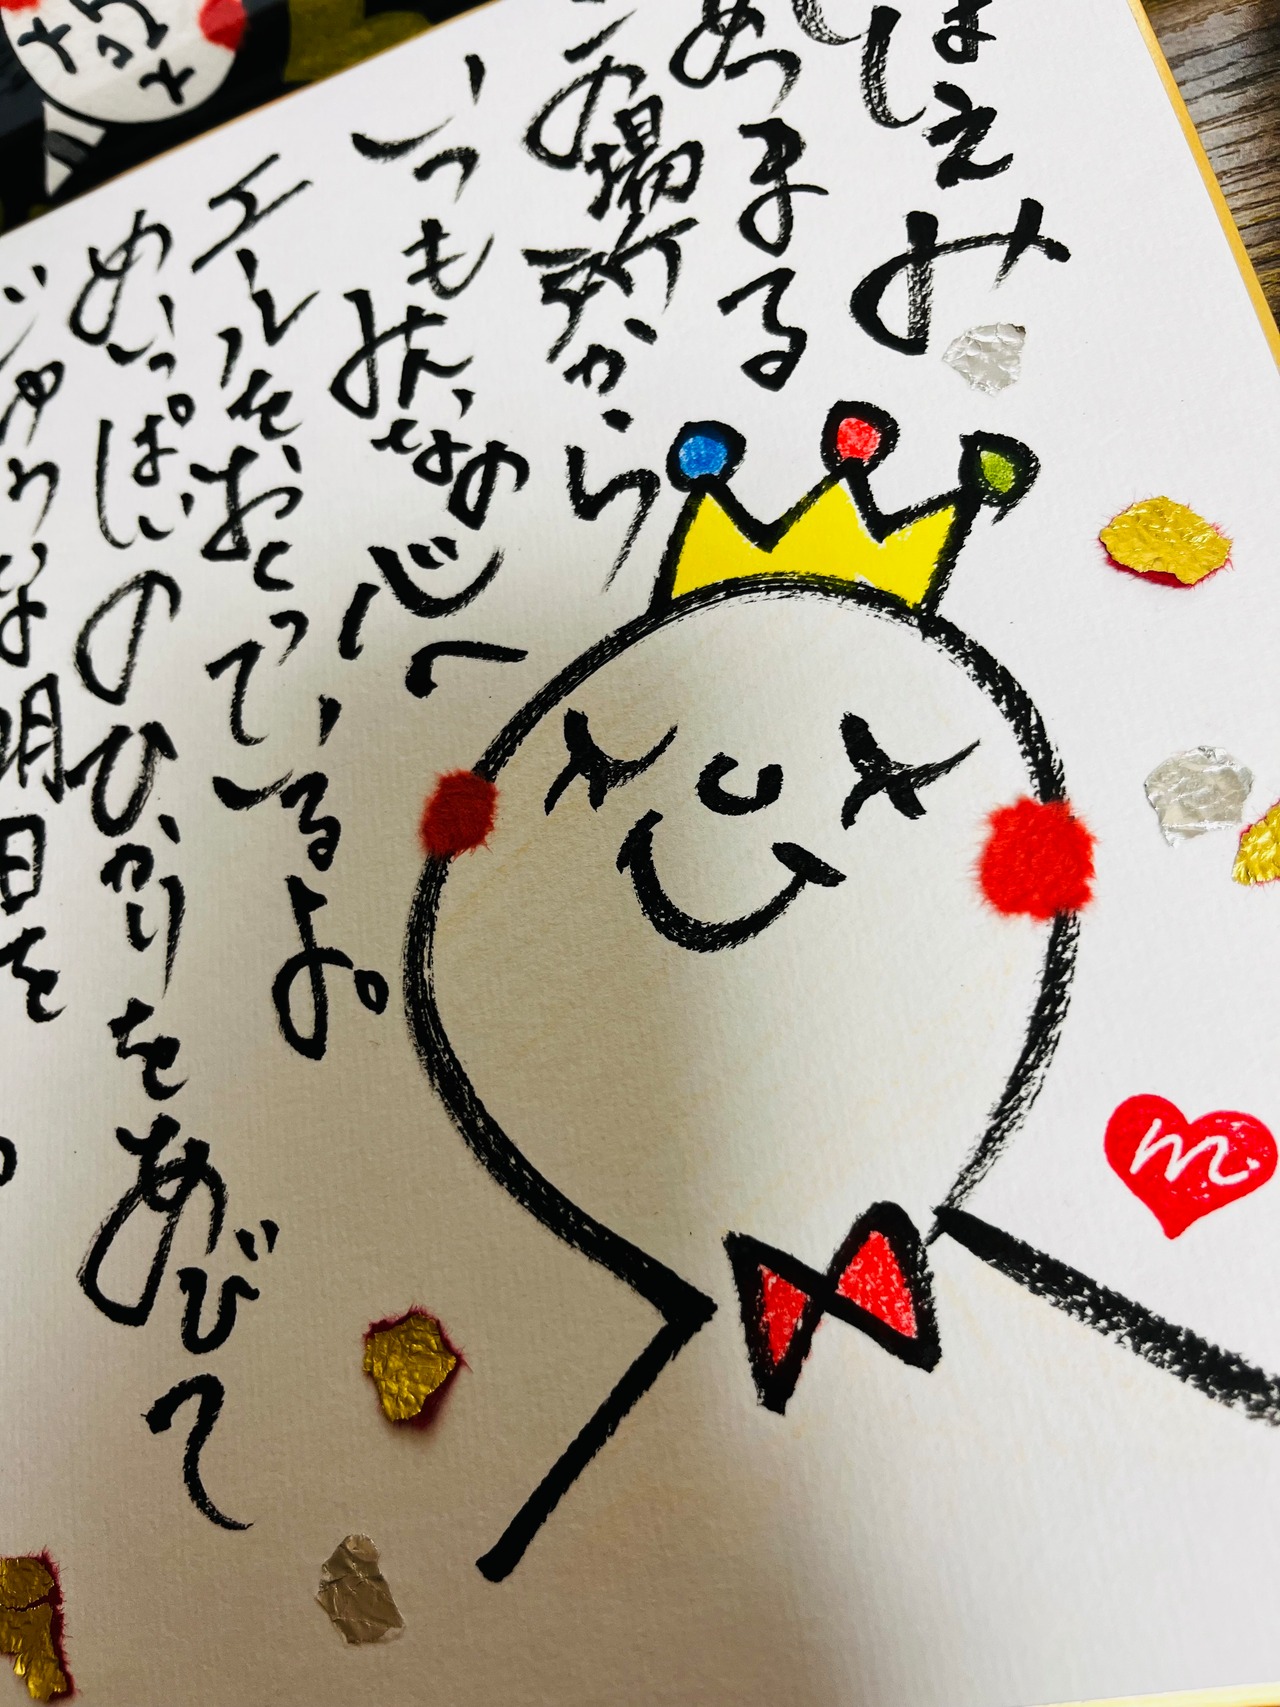 ほえみ
あつまる
この場所から
いつもみんなの心へ
エールをおくっているよ。
めいっぱいのひかりをあびて
明日を
m